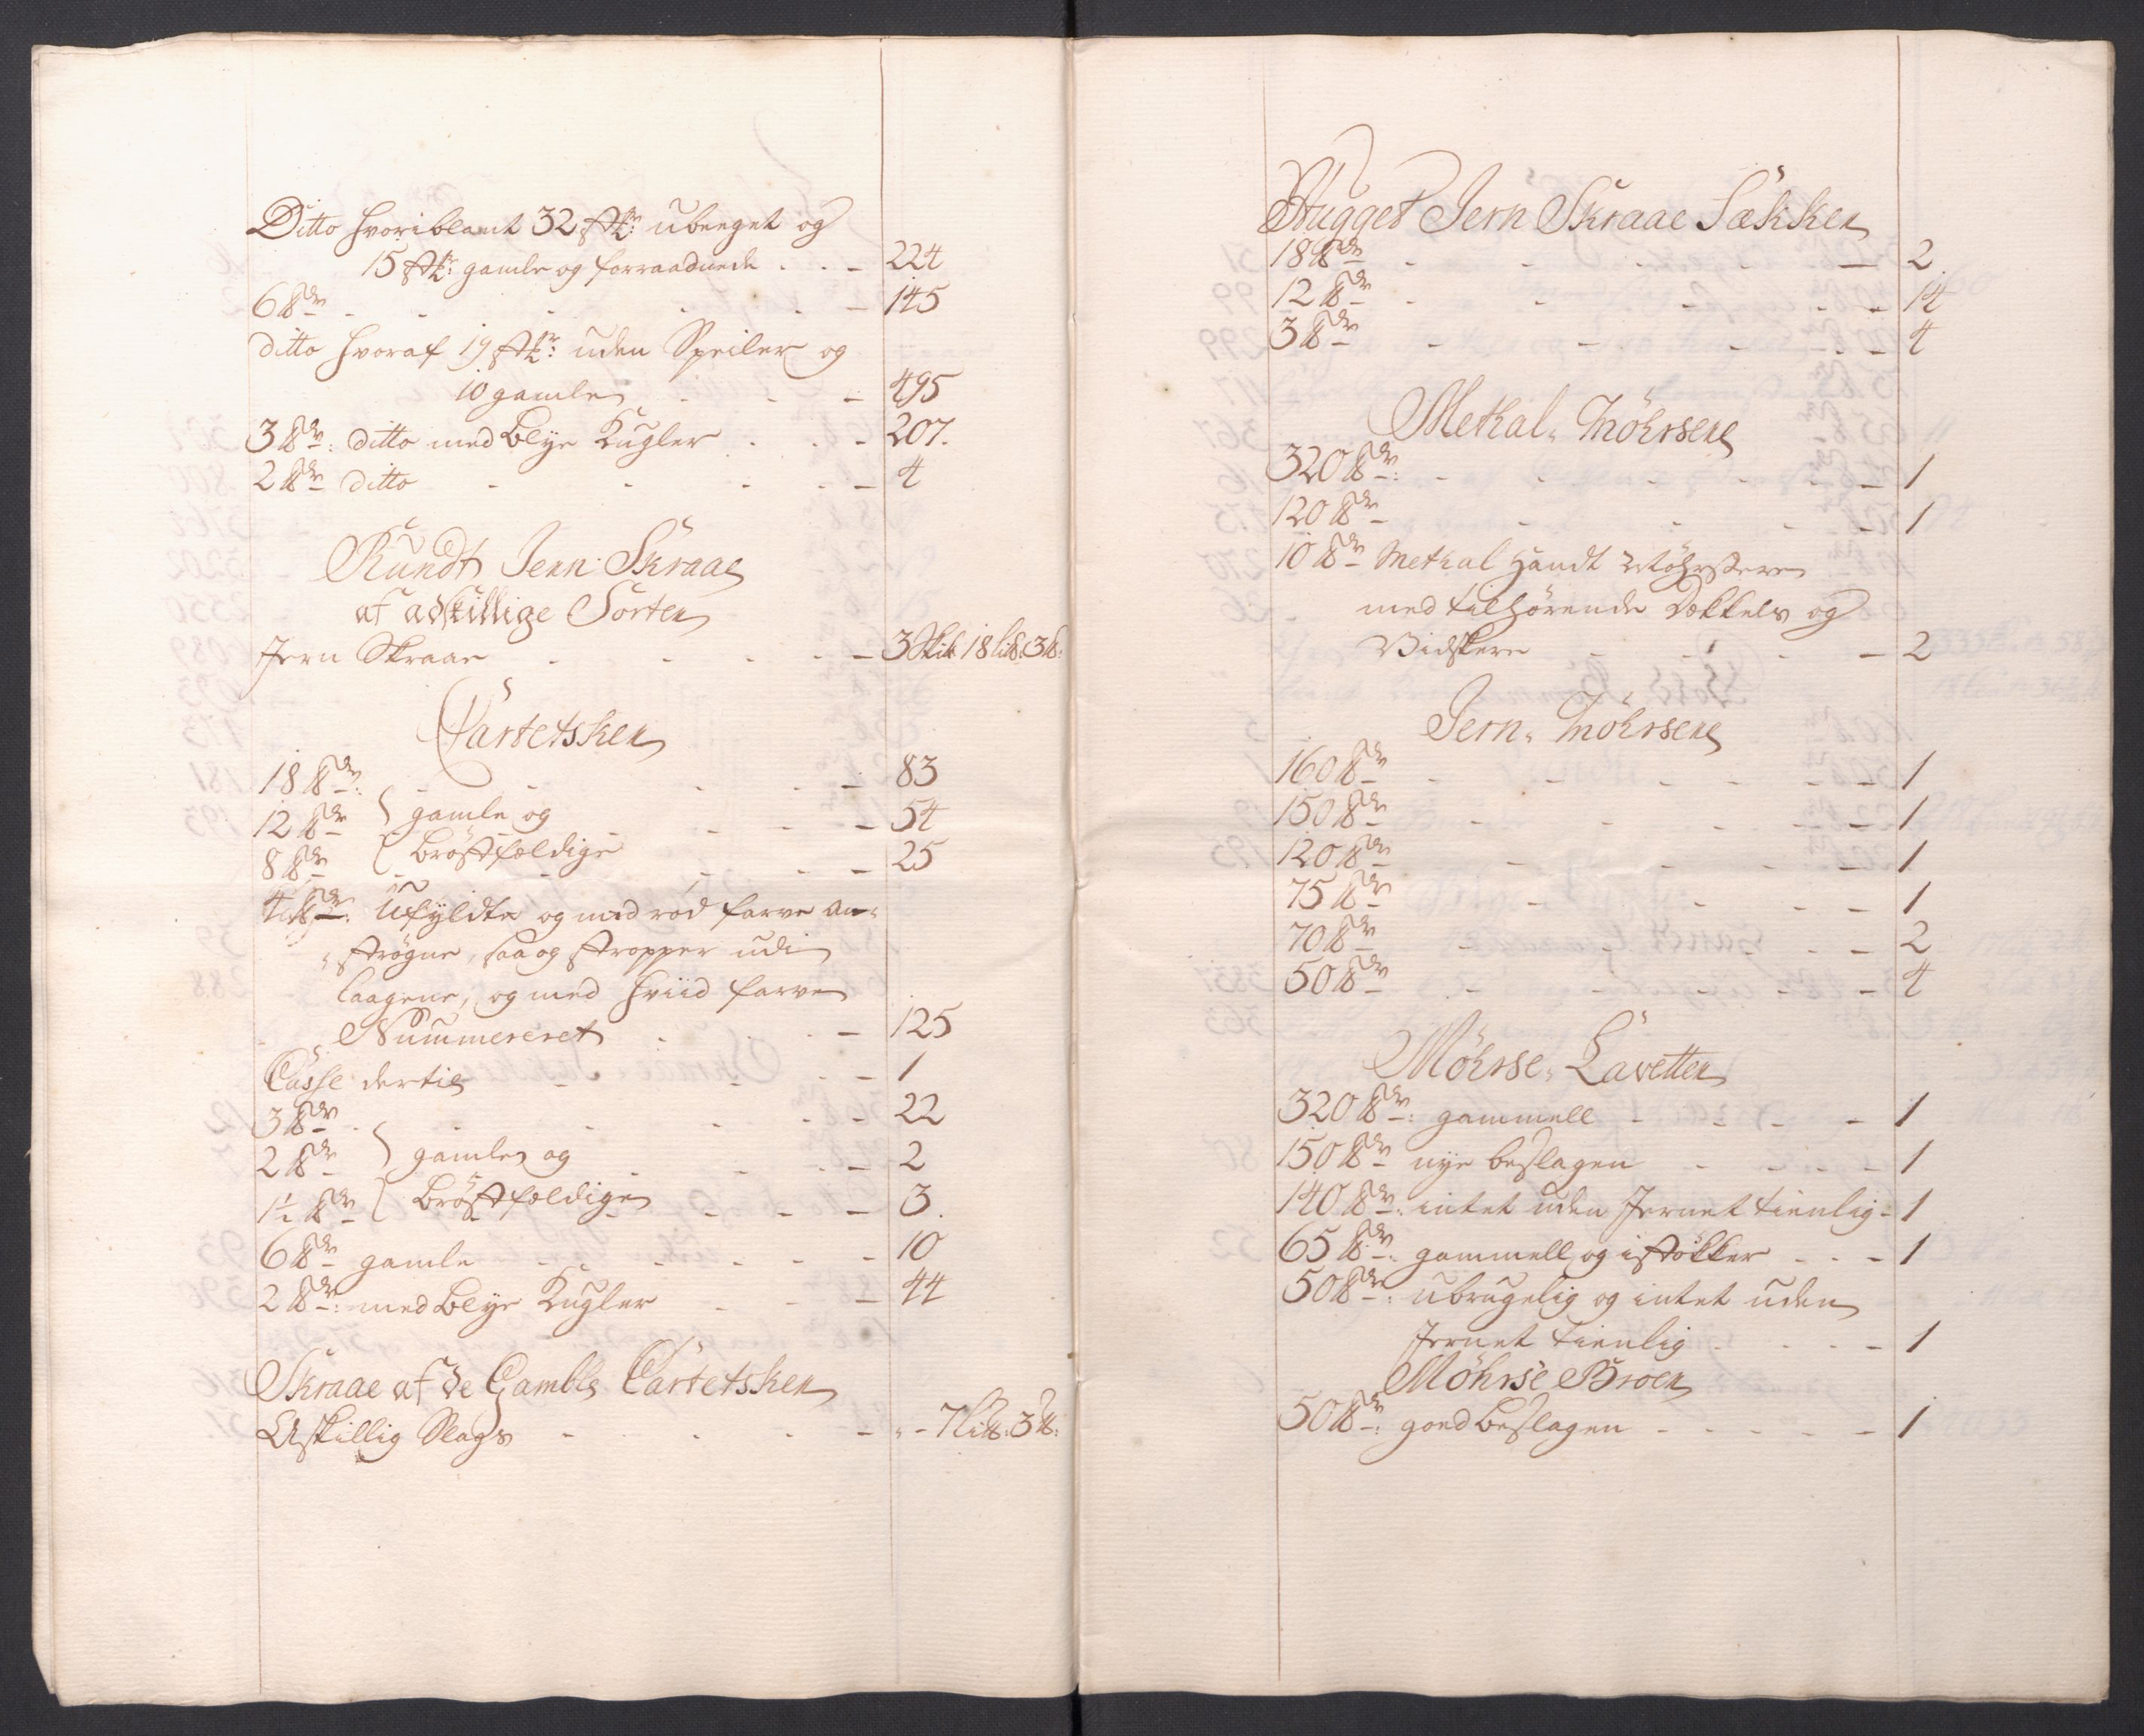 Ditto hvoriblant 32 Stk: ubeeget og
15 Stk: gamle og forraadnede - 224
6 ℔dr - 145
ditto hvoraf 19 Stk: uden Speiler og
10 gamle - 495
3 ℔dr: ditto med Blye Kugler - 207.
2 ℔dr ditto - 4
Rundt Jern Skraae
af adskillige Sorter
Jern Skraae - 3 Skit 18 Li℔: 3 ℔:
Cartetsker
18 ℔dr: - 83
12 ℔dr } gamle og - 54
8 ℔dr { Brøstfældige - 25
4 ℔dr: Ufyldte og med rød farve an-
strøgne, saa og stropper udi
laagene, og med hviid farve
Nummereret - 125
Casse dertil - 1
3 ℔dr - 22
2 ℔dr } gamle og - 2
1½ ℔dr { Brøstfældige - 3.
6 ℔dr gamle - 10
2 ℔dr: med Blye Kugler - 44
Skraae af de Gamble Cartetsker
Askillig Slags - " - 7 Li℔: 3 ℔:
Hugget Jern Skraae Sækker
18 ℔dr - 2
12 ℔dr - 14
3 ℔dr - 4
Methal- Möhrsere
320 ℔dr: - 1
120 ℔dr - 1
10 ℔dr Methal Handt Möhrsere
med tilhørende Dekkels og
Vidskere - 2
Jern- Möhrsere
160 ℔dr - 1
150 ℔dr - 1
120 ℔dr - 1
75 ℔dr - 1
70 ℔dr - 2
50 ℔dr - 4
Möhrse- Lavetter
320 ℔dr: gammell - 1
150 ℔dr nye beslagen - 1
140 ℔dr: intet uden Jernet tienlig - 1
65 ℔dr: gammell og i støkker - 1
50 ℔dr: ubrugelig og intet uden
Jernet tienlig - 1
Möhrse Broer
50 ℔dr: goed Beslagen - 1